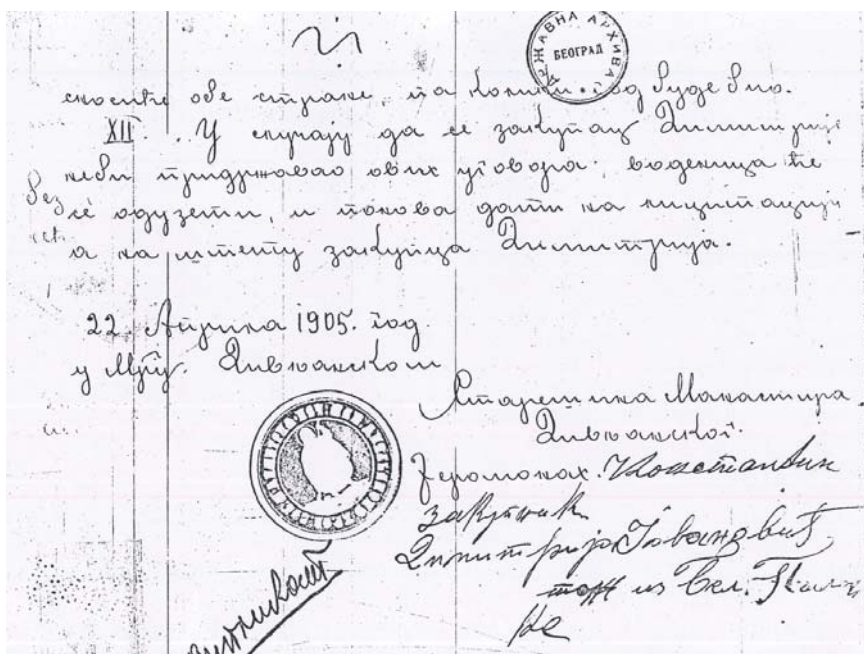 ДРЖАВНА АРХИВА
БЕОГРАД
сносити обе стране, па колики год буде био.
XII. У случају да се закупац Димитрије
неби придржавао ових уговора; воденица ће
се одузети, и понова дати на лицитацију
а на штету закупца Димитрија.
22. Априла 1905. год
у Мтру. Дивљанском
Старешина Манастира
Дивљанског.
Јеромонах. Константин
закупник
Димитрије Јовановић
из Бел. Паланке